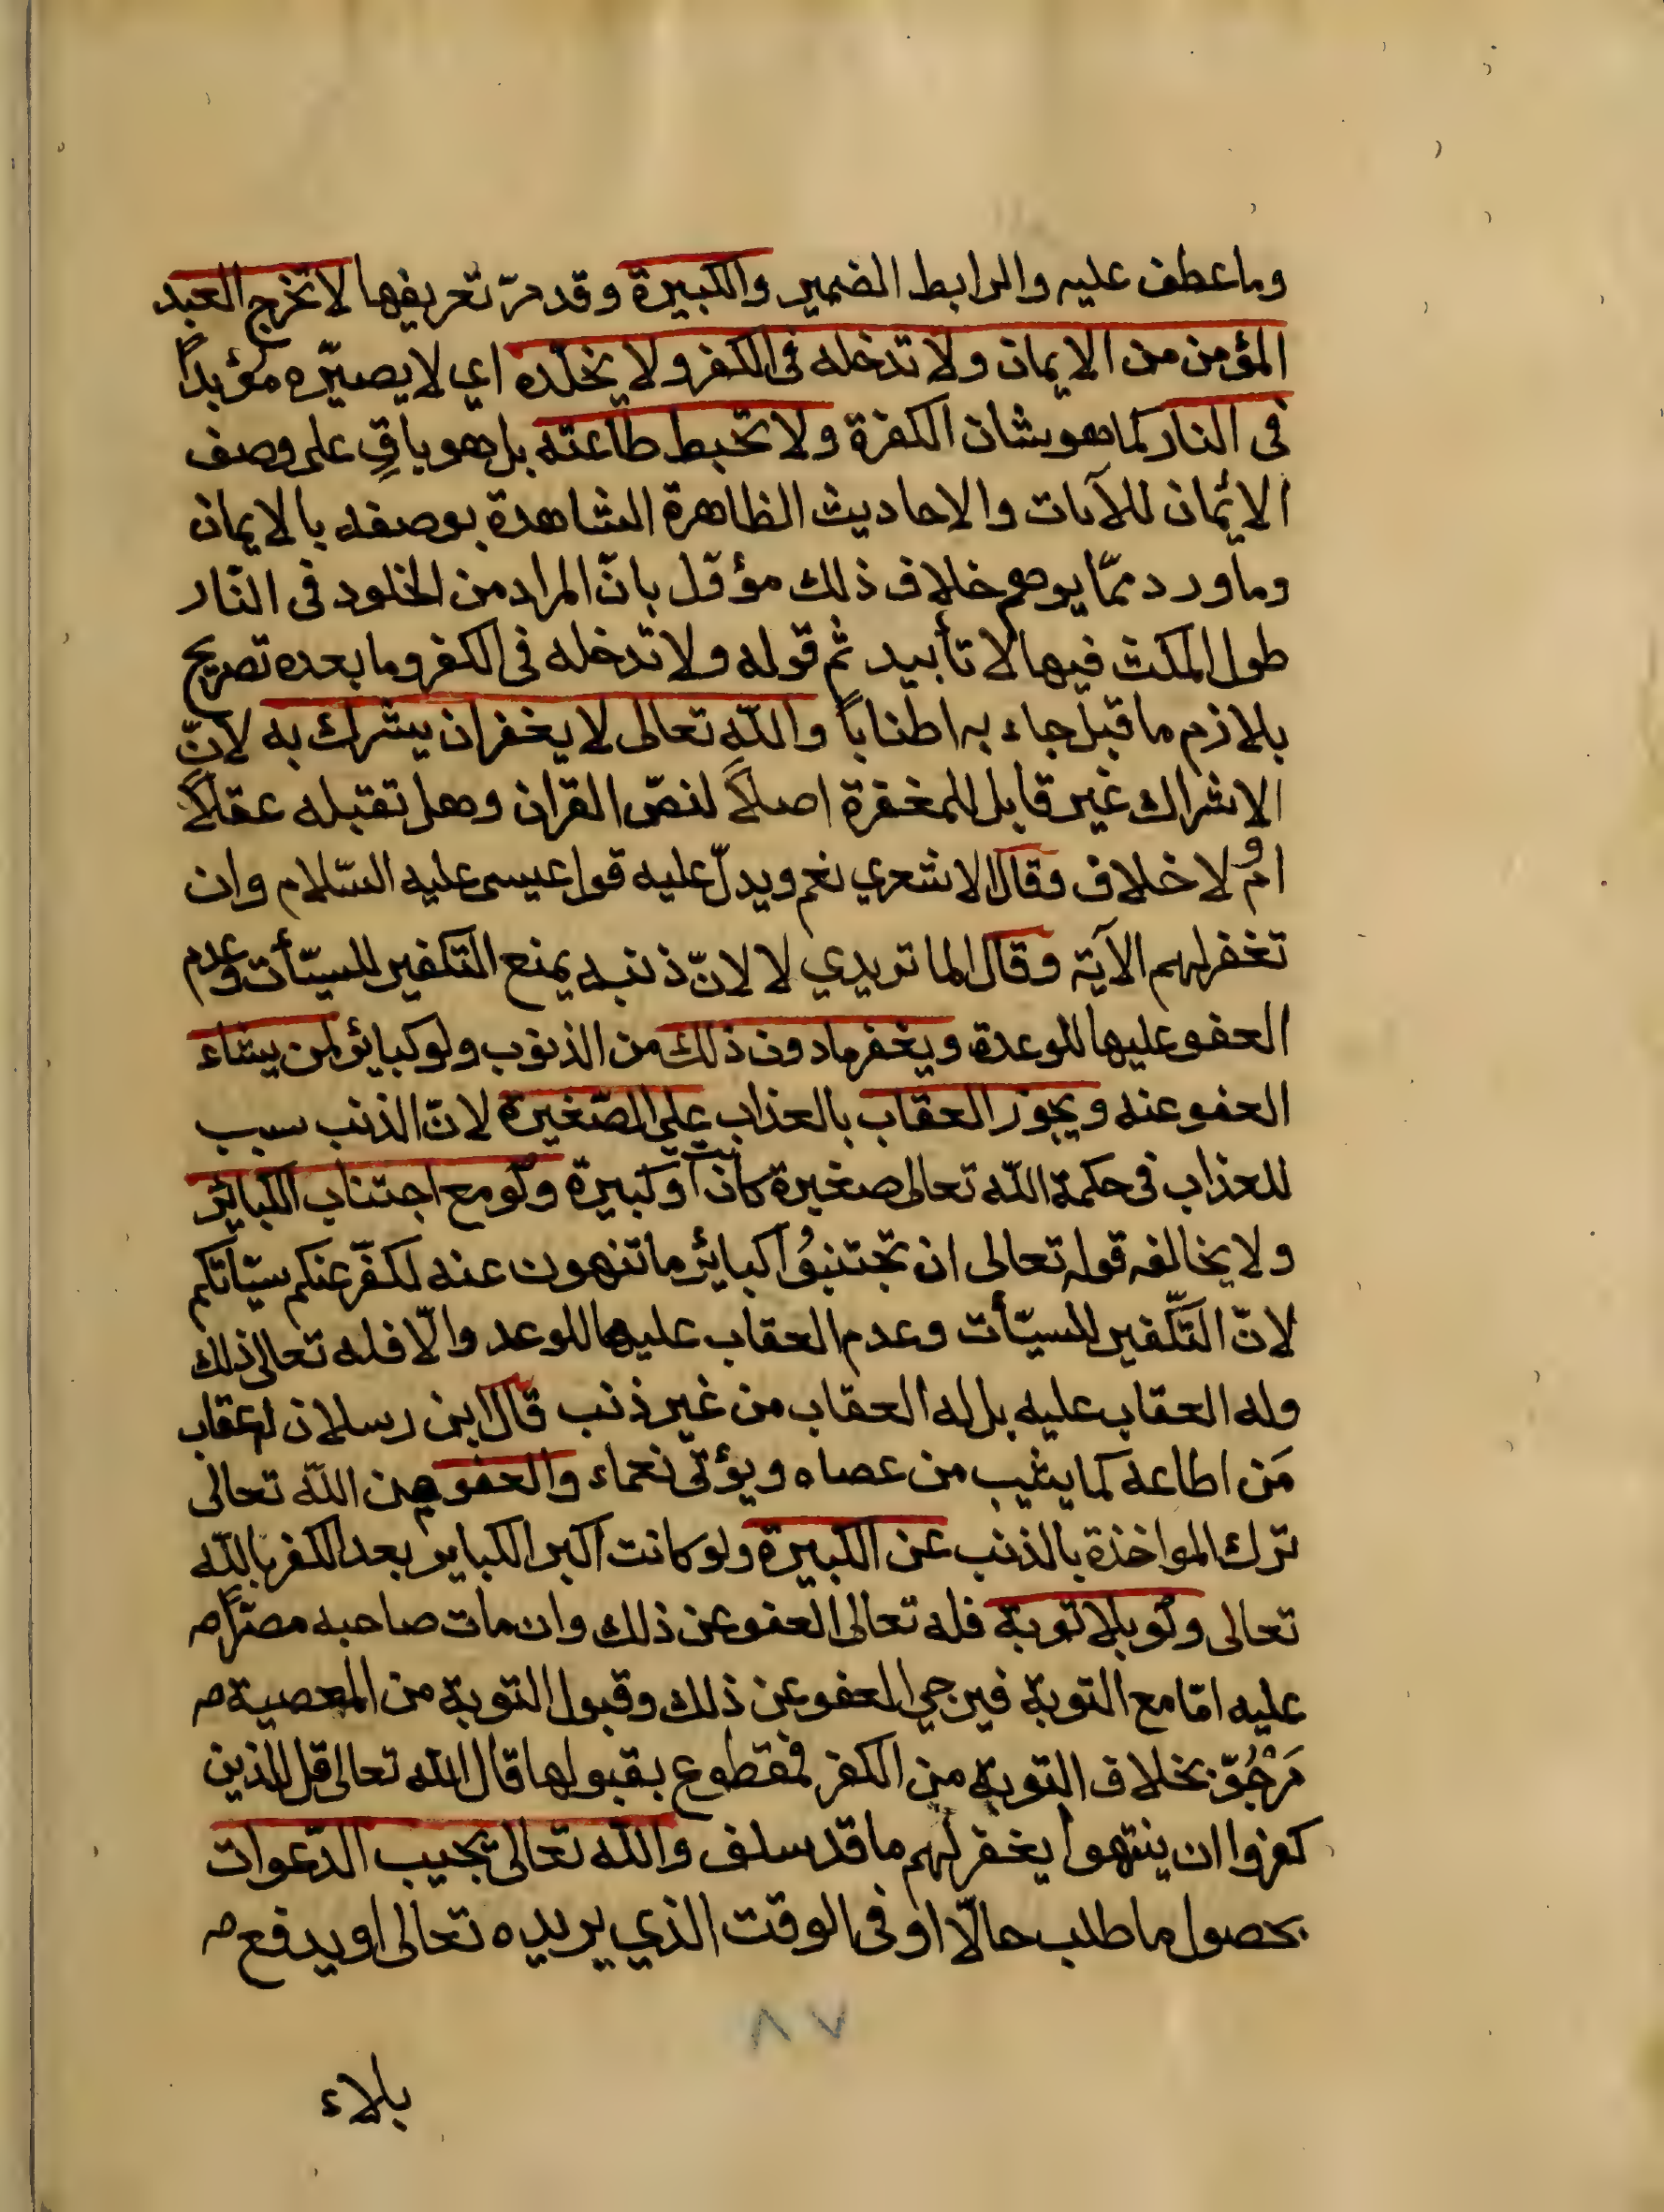 وما عطف عليه والرابط الضمير والكبيرة وقد مرّ تعريفها لا تخرج العبد
المؤمن من الايمان ولا تدخله فى الكفر ولا يخلّده اي لا يصيّره مؤبداً
فى النار كما هو شان الكفرة ولا تحبط طاعته بل هو باقٍ على وصف
الائمان للآيات والاحاديث الظاهرة الشاهدة بوصفه بالايمان
وما ورد ممّا يوهم خلاف ذلك مؤوّل بانّ المراد من الخلود فى النّار
طول المكث فيها لا تأبيد ثم قوله ولا تدخله فى الكفر وما بعده تصريح
بلازم ما قبل جاء به اطناباً والله تعالى لا يغفر ان يشرك به لانّ
الاشراك غير قابل للمغفرة اصلاً لنصّ القران وهل تقبله عقلاً
امْ لا خلاف وقال الاشعري نعم ويدلّ عليه قول عيسى عليه السّلام وان
تغفر لهم الآية وقال الماتريدي لا لانّ ذنبه يمنع التكفير للسيّأت وعدم
العفو عليها للوعدة ويغفر ما دون ذلك من الذنوب ولو كبائر لمن يشاء
العفو عنه ويجوز العقاب بالعذاب على الصّغيرة لانّ الذنب سبب
للعذاب فى حكمة الله تعالى صغيرة كانت او كبيرة ولو مع اجتناب الكبائر
ولا يخالفه قوله تعالى ان تجتنبوُا كبائر ما تنهون عنه لكفّر عنكم سيّأتكم
لانّ التّكفير للسيّأت وعدم العقاب عليها للوعد والّا فله تعالى ذلك
وله العقاب عليه بل له العقاب من غير ذنب قال ابن رسلان له عقاب
مَن اطاعه كما يثيب من عصاه ويؤتى نعماء والعفو من الله تعالى
ترك المواخذة بالذنب عن الكبيرة ولو كانت اكبر الكباير بعد الكفر بالله
تعالى ولو بلا توبة فله تعالى العفو عن ذلك وان مات صاحبه مصرّاً
عليه امّا مع التوبة فيرجي العفو عن ذلك وقبول التوبة من المعصية
مَرْجُوّ بخلاف التوبة من الكفر فمقطوع بقبولها قال الله تعالى قل للذين
كفروا ان ينتهوا يغفر لهم ما قد سلف والله تعالى يجيب الدّعوات
بحصول ما طلب حالّا او فى الوقت الذي يريده تعالى او يدفع
٨٧
بلاء